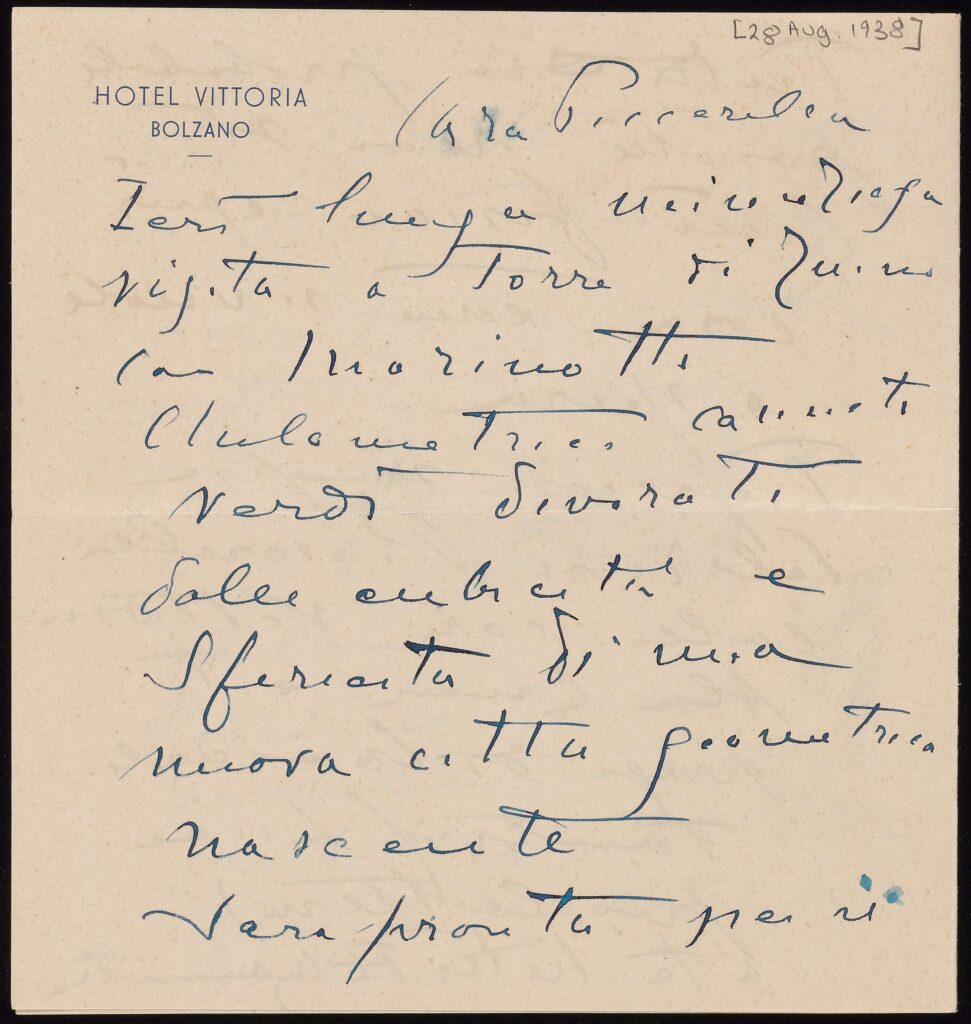 [28 Aug. 1938]
HOTEL VITTORIA
BOLZANO
Cara Piccerella
Ieri lunga minuziosa
visita a Torre di Zuino
con Marinotti
Chilometrici canneti
verdi divorati
dalle cubicità e
sfericità di una
nuova città geometrica
nascente
Sarà pronta per il